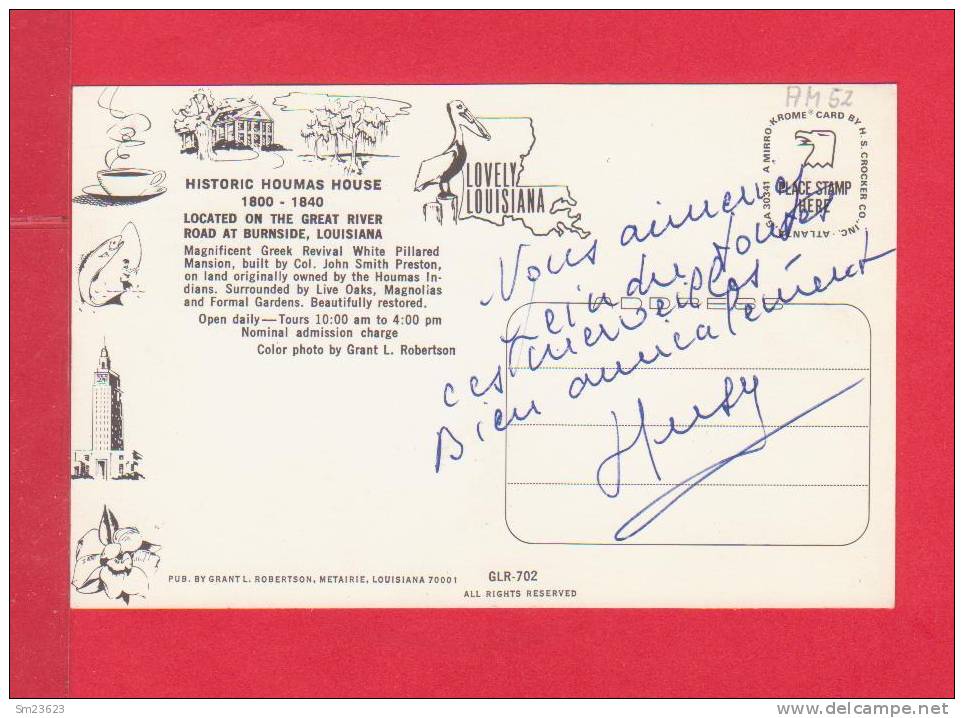 AM 52
A MIRRO-KROME® CARD BY H. S. CROCKER CO., INC. ATLANTA, GA 30341
PLACE STAMP
HERE
LOVELY
LOUISIANA
HISTORIC HOUMAS HOUSE
1800 - 1840
LOCATED ON THE GREAT RIVER
ROAD AT BURNSIDE, LOUISIANA
Magnificent Greek Revival White Pillared
Mansion, built by Col. John Smith Preston,
on land originally owned by the Houmas In-
dians. Surrounded by Live Oaks, Magnolias
and Formal Gardens. Beautifully restored.
Open daily—Tours 10:00 am to 4:00 pm
Nominal admission charge
Color photo by Grant L. Robertson
ADDRESS
Vous aimeriez
peindre toutes
ces merveilles
Bien amicalement
PUB. BY GRANT L. ROBERTSON, METAIRIE, LOUISIANA 70001
GLR-702
ALL RIGHTS RESERVED
Sm23623
www.delcampe.net